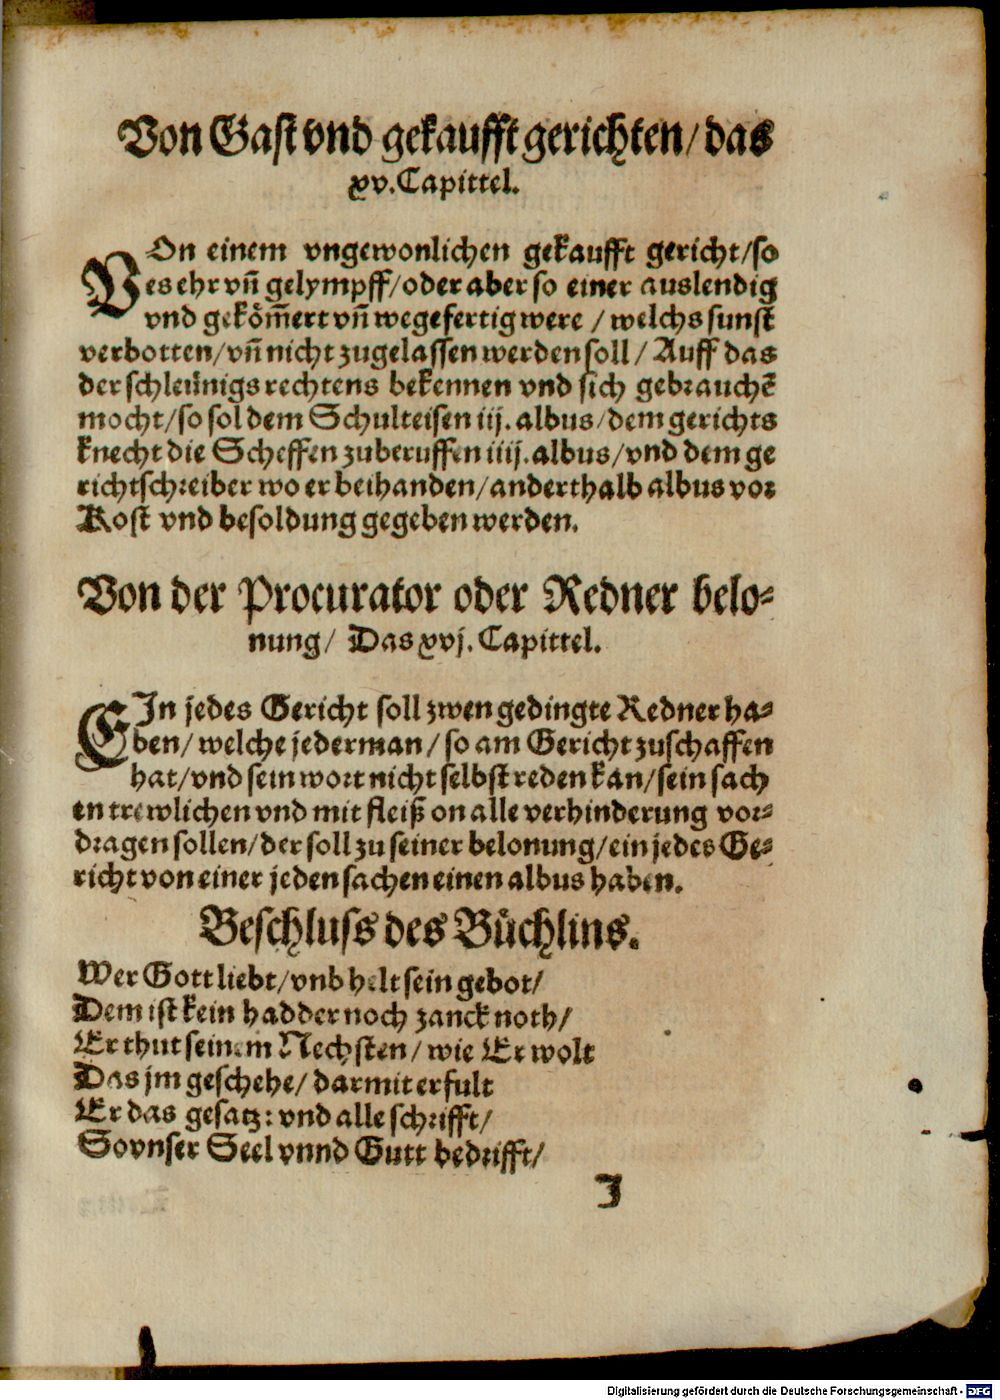 Von Gast vnd gekaufft gerichten/ das
xv. Capittel.
VOn einem vngewonlichen gekaufft gericht/ so
es ehr vñ gelympff/ oder aber so einer auslendig
vnd geköm̃ert vñ wegefertig were / welchs sunst
verbotten/ vñ nicht zugelassen werden soll / Auff das
der schleünigs rechtens bekennen vnd sich gebrauchẽ
mocht/ so sol dem Schulteisen iij. albus/ dem gerichts
knecht die Scheffen zuberuffen iiij. albus/ vnd dem ge
richtschreiber wo er beihanden/ anderthalb albus vor
Kost vnd besoldung gegeben werden.
Von der Procurator oder Redner belo-
nung/ Das xvj. Capittel.
EIn jedes Gericht soll zwen gedingte Redner ha-
ben/ welche jederman/ so am Gericht zuschaffen
hat/ vnd sein wort nicht selbst reden kan/ sein sach
en trewlichen vnd mit fleiß on alle verhinderung vor-
dragen sollen/ der soll zu seiner belonung/ ein jedes Ge-
richt von einer jeden sachen einen albus haben.
Beschluss des Büchlins.
Wer Gott liebt/ vnb helt sein gebot/
Dem ist kein hadder noch zanck noth/
Er thut seinem Nechsten/ wie Er wolt
Das jm geschehe/ darmit erfult
Er das gesatz: vnd alle schrifft/
So vnser Seel vnnd Gutt bedrifft/
J
Digitalisierung gefördert durch die Deutsche Forschungsgemeinschaft - DFG